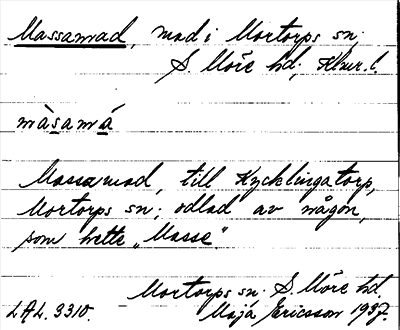 Massamad, mad i Mortorps sn.
S. Möre hd, Klmr. l.
màsamá
Massamad, till Kycklingatorp,
Mortorps sn; odlad av någon,
som hette „Masse".
Mortorps sn. S. Möre hd.
LAL. 3310. Maja Ericsson 1937.